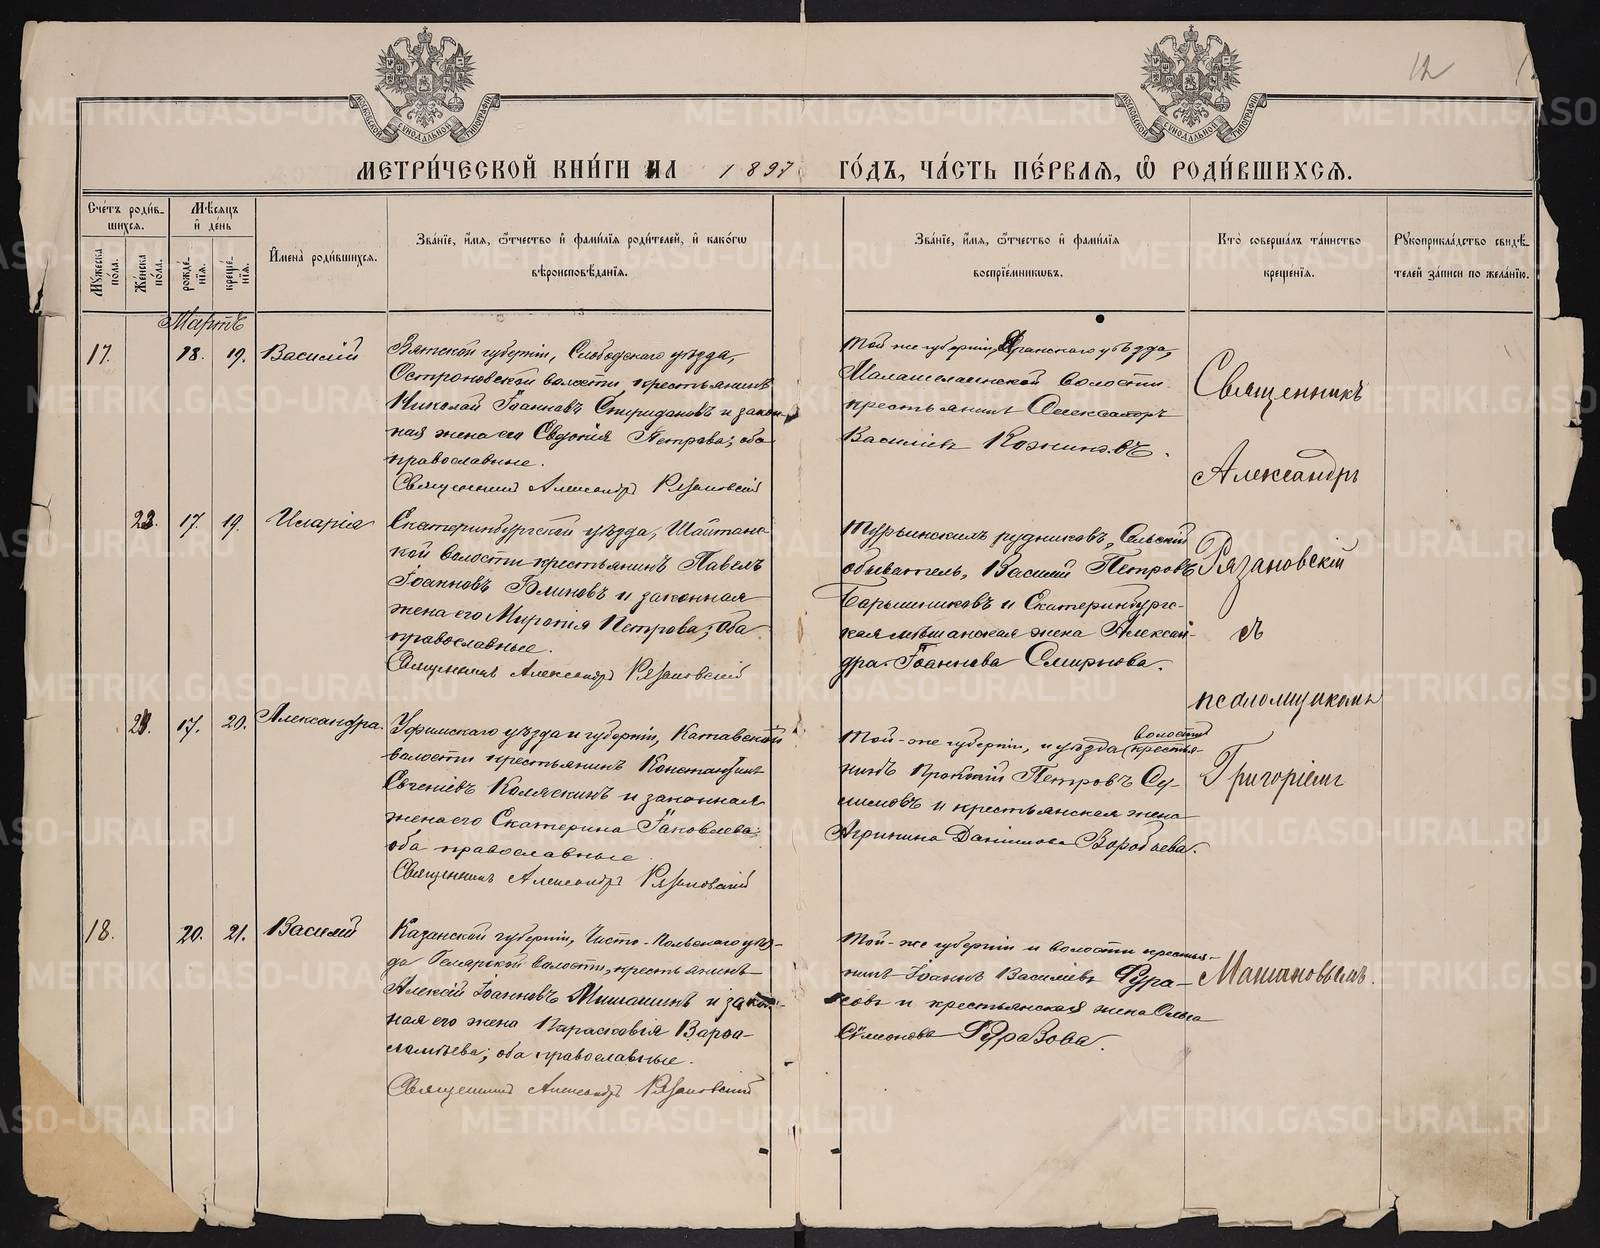 12
МОСКОВСКОЙ СУНОДАЛЬНОЙ ТИПОГРАФІИ
МОСКОВСКОЙ СУНОДАЛЬНОЙ ТИПОГРАФІИ
МЕТРИ́ЧЕСКОЙ КНИ́ГИ НА 1897 ГО́ДЪ, ЧА́СТЬ ПЕ́РВАѦ, Ѡ РОДИ́ВШИХСѦ.
Сче́тъ роди́в-
шихсѧ.
Мѣ́сѧцъ
и де́нь
Му́жеска
по́ла.
Же́нска
по́ла.
рожде́-
нїѧ.
креще́-
нїѧ.
Имена̀ роди́вшихсѧ.
Зва́нїе, и́мѧ, ѻ́тчество и фами́лїѧ роди́телей, и како́гѡ
вѣроисповѣ́данїѧ.
Зва́нїе, и́мѧ, ѻ́тчество и фами́лїѧ
воспрїе́мникѡвъ.
Кто̀ соверша́лъ та́инство
креще́нїѧ.
Рꙋкоприкла́дство свидѣ́-
телей за́писи по жела́нїю.
Мартъ
17. 18. 19. Василій
Вятской губерніи, Слободскаго уѣзда,
волости, крестьянинъ
Николай Іоанновъ Спиридоновъ и закон-
ная жена его Евдокія Петрова; оба
православные.
Священникъ Александръ Рязановскій
Той же губерніи, Яранскаго уѣзда,
волости
крестьянинъ Александръ
Василіевъ
22. 17. 19. Иларія
Екатеринбургской уѣзда, Шайтанс-
кой волости крестьянинъ Павелъ
Іоанновъ Блиновъ и законная
жена его Миропія Петрова; оба
православные.
Священникъ Александръ Рязановскій
Турьинскихъ рудниковъ, Сельскій
обыватель, Василій Петровъ
Барышниковъ и Екатеринбургс-
кая мѣщанская жена Алексан-
дра Іоаннова Смирнова.
17. 20. Александра.
Уфимскаго уѣзда и губерніи, Катавской
волости крестьянинъ Константинъ
Евгеніевъ Коляскинъ и законная
жена его Екатерина Іаковлева;
оба православные
Священникъ Александръ Рязановскій
волости
Той-же губерніи, и уѣзда крестья-
нинъ Петровъ Су-
и крестьянская жена
Агрипина Даніилова Воробьева.
18. 20. 21. Василій
Казанской губерніи, Чисто-Польскаго уѣз-
да волости, крестьянинъ
Алексій Іоанновъ Мишашинъ и закон-
ная его жена Парасковія Варфо-
ломѣева; оба православные.
Священникъ Александръ Рязановскій
Той-же губерніи и волости крестья-
нинъ Іоаннъ Василіевъ Фура-
зовъ и крестьянская жена Ольга
Сѵмеонова Фуразова.
Священникъ
Александръ
Рязановскій
съ
псаломщикомъ
Григоріемъ